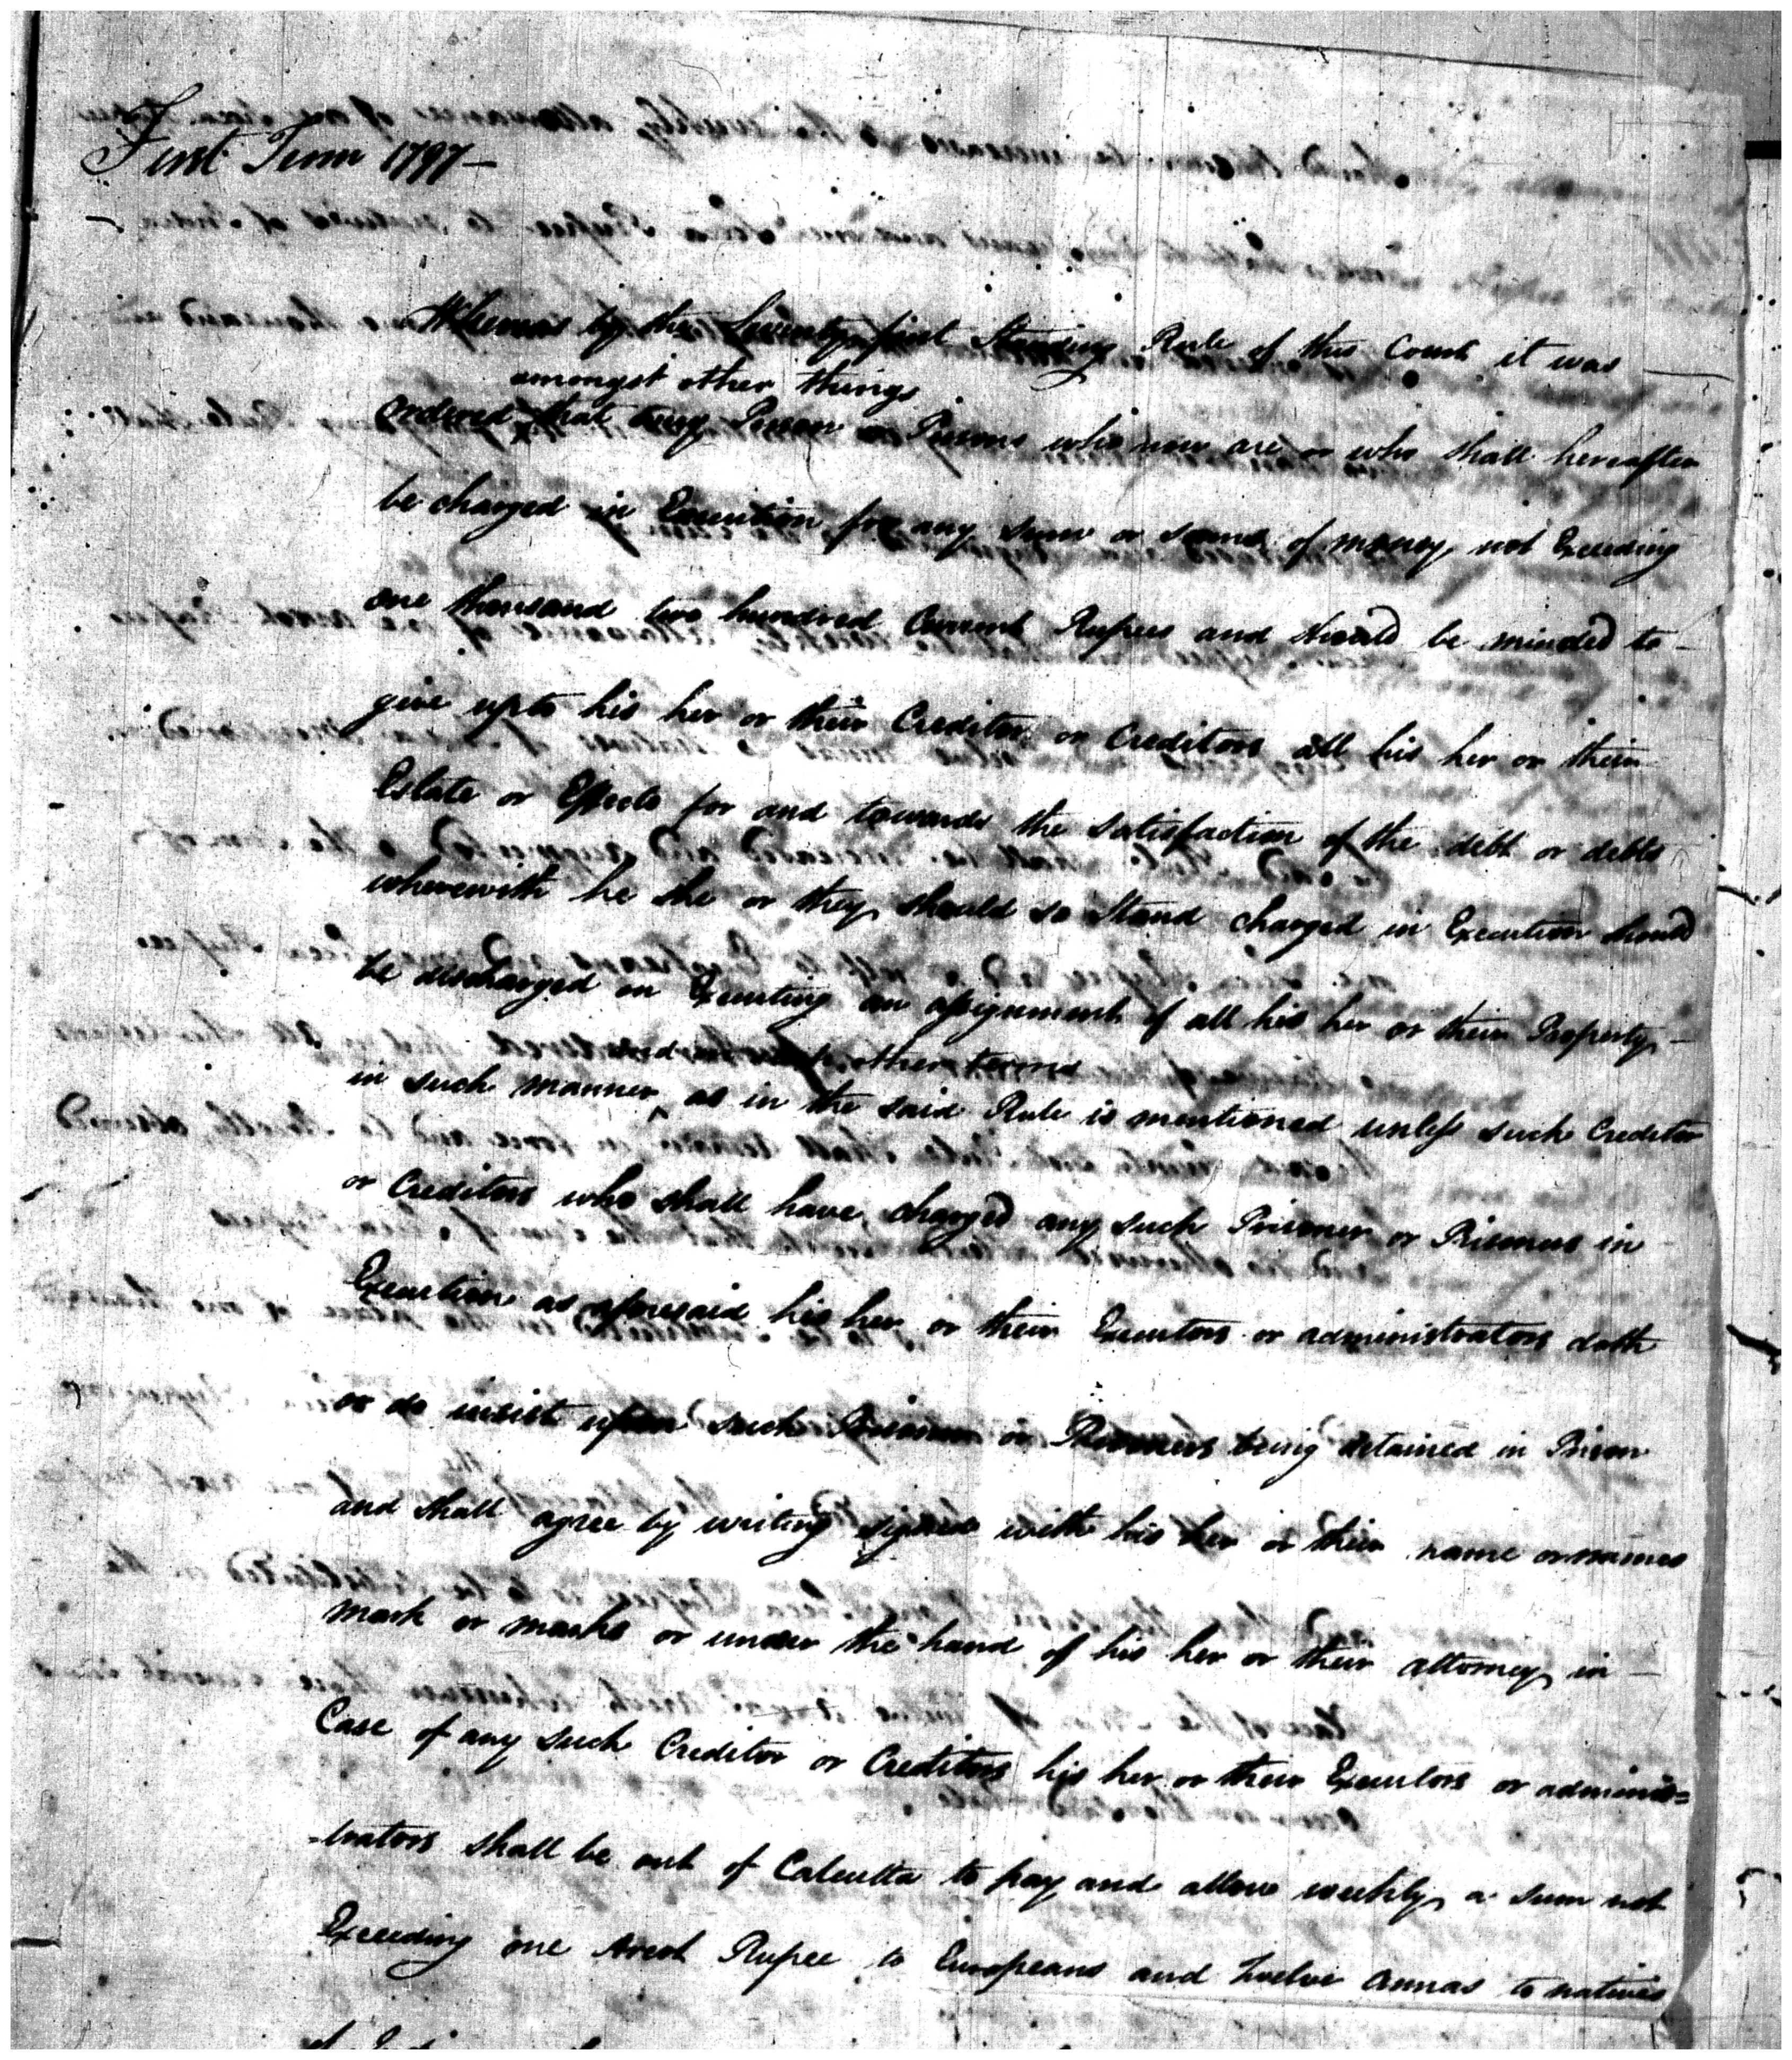 First Term 1797—
Whereas by the Seventy first Standing Rule of this Court it was
amongst other things
ordered that any Person or Persons who now are or who shall hereafter
be charged in Execution for any sum or sums of money not Exceeding
one thousand two hundred Current Rupees and should be minded to —
give up to his her or their Creditor or Creditors all his her or their
Estate or Effects for and towards the satisfaction of the debt or debts
wherewith he she or they should so Stand charged in Execution should
be discharged on Executing an assignment of all his her or their Property —
and other terms
in such manner as in the said Rule is mentioned unless such Creditor
or Creditors who shall have charged any such Prisoner or Prisoners in
Execution as aforesaid his her or their Executors or administrators doth
or do insist upon such Prisoner or Prisoners being detained in Prison
and shall agree by writing signed with his her or their name or names
mark or marks or under the hand of his her or their attorney in —
Case of any such Creditor or Creditors his her or their Executors or adminis=
-trators shall be out of Calcutta to pay and allow weekly a sum not
Exceeding one Arcot Rupee to Europeans and twelve annas to natives